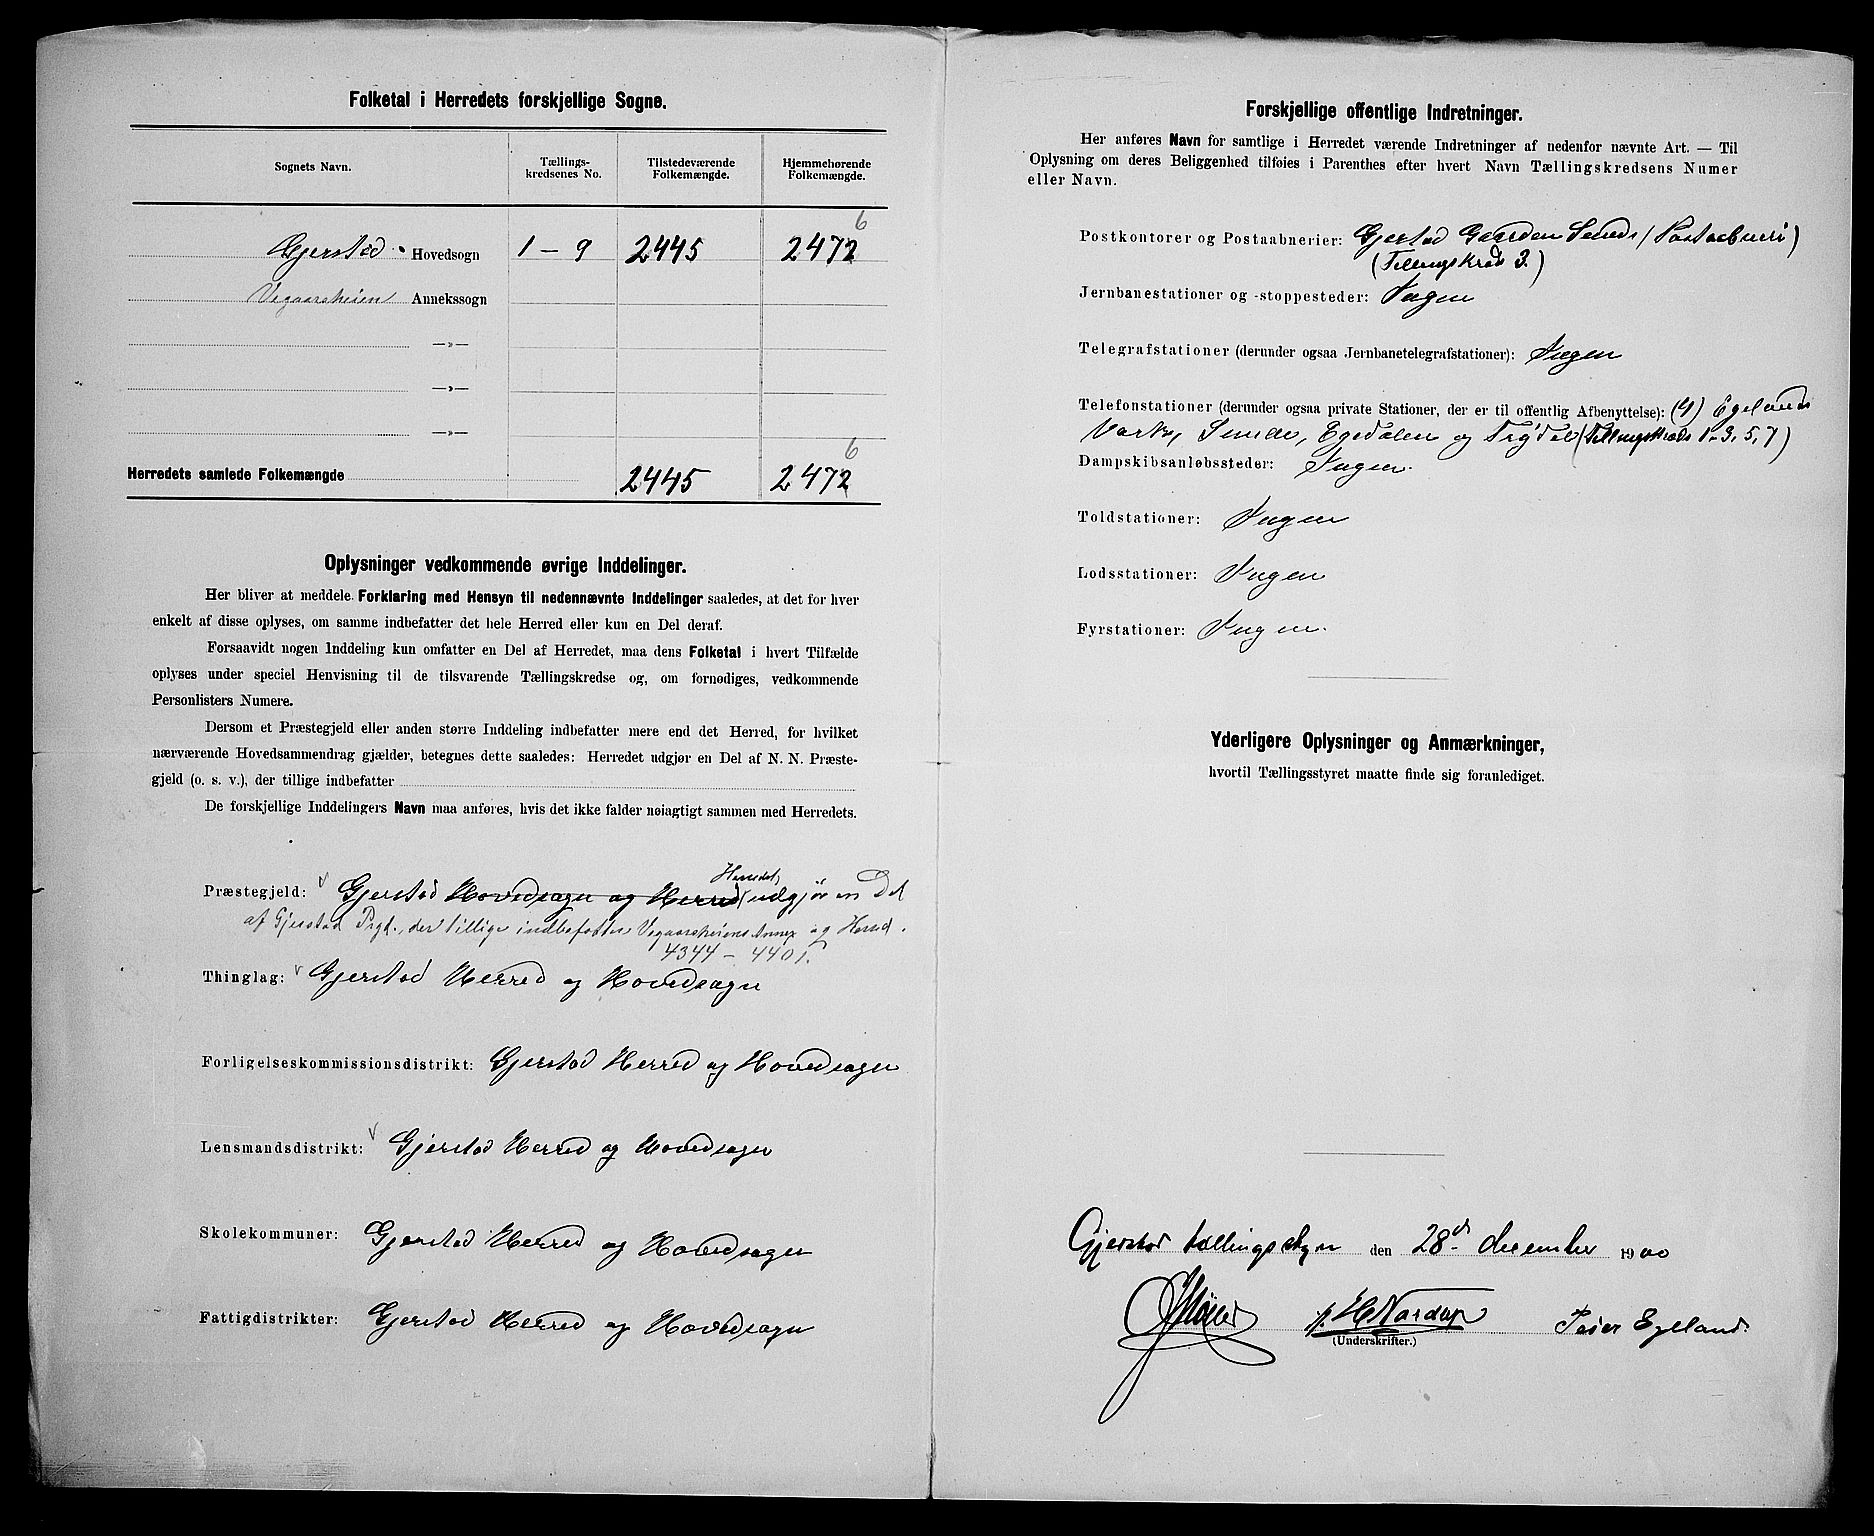 Folketal i Herredets forskjellige Sogne.
Sognets Navn.
Tællings-
kredsenes No.
Tilstedeværende
Folkemængde.
Hjemmehørende
Folkemængde.
6
Gjerstad Hovedsogn 1 - 9 2445 2472
Vegaarsheien Annekssogn
—»—
—»—
—»—
6
Herredets samlede Folkemængde 2445 2472
Oplysninger vedkommende øvrige Inddelinger.
Her bliver at meddele Forklaring med Hensyn til nedennævnte Inddelinger saaledes, at det for hver
enkelt af disse oplyses, om samme indbefatter det hele Herred eller kun en Del deraf.
Forsaavidt nogen Inddeling kun omfatter en Del af Herredet, maa dens Folketal i hvert Tilfælde
oplyses under speciel Henvisning til de tilsvarende Tællingskredse og, om fornødiges, vedkommende
Personlisters Numere.
Dersom et Præstegjeld eller anden større Inddeling indbefatter mere end det Herred, for hvilket
nærværende Hovedsammendrag gjælder, betegnes dette saaledes: Herredet udgjør en Del af N. N. Præste-
gjeld (o. s. v.), der tillige indbefatter
De forskjellige Inddelingers Navn maa anføres, hvis det ikke falder nøiagtigt sammen med Herredets.
Herredet
Præstegjeld: Gjerstad Hovedsogn og Herred udgjør en Del
af Gjerstad Prgd., der tillige indbefatter Vegaarsheiens Annex og Herred.
4344 - 4401.
Thinglag: Gjerstad Herred og Hovedsogn
Forligelseskommissionsdistrikt: Gjerstad Herred og Hovedsogn
Lensmandsdistrikt: Gjerstad Herred og Hovedsogn
Skolekommuner: Gjerstad Herred og Hovedsogn
Fattigdistrikter: Gjerstad Herred og Hovedsogn
Forskjellige offentlige Indretninger.
Her anføres Navn for samtlige i Herredet værende Indretninger af nedenfor nævnte Art. — Til
Oplysning om deres Beliggenhed tilføies i Parenthes efter hvert Navn Tællingskredsens Numer
eller Navn.
Postkontorer og Postaabnerier: Gjerstad Gaarden Sunde (Postaabneri)
(Tellingskreds 3.)
Jernbanestationer og -stoppesteder: Ingen
Telegrafstationer (derunder ogsaa Jernbanetelegrafstationer): Ingen
Telefonstationer (derunder ogsaa private Stationer, der er til offentlig Afbenyttelse): (4) Egelands
Værk, Sunde, Egedalen og Trydal (Tellingskreds 1-3, 5, 7)
Dampskibsanløbssteder: Ingen.
Toldstationer: Ingen
Lodsstationer: Ingen
Fyrstationer: Ingen.
Yderligere Oplysninger og Anmærkninger,
hvortil Tællingsstyret maatte finde sig foranlediget.
Gjerstad tællingsstyre den 28de december 1900
H Nardrup Peder Eglland.
(Underskrifter.)